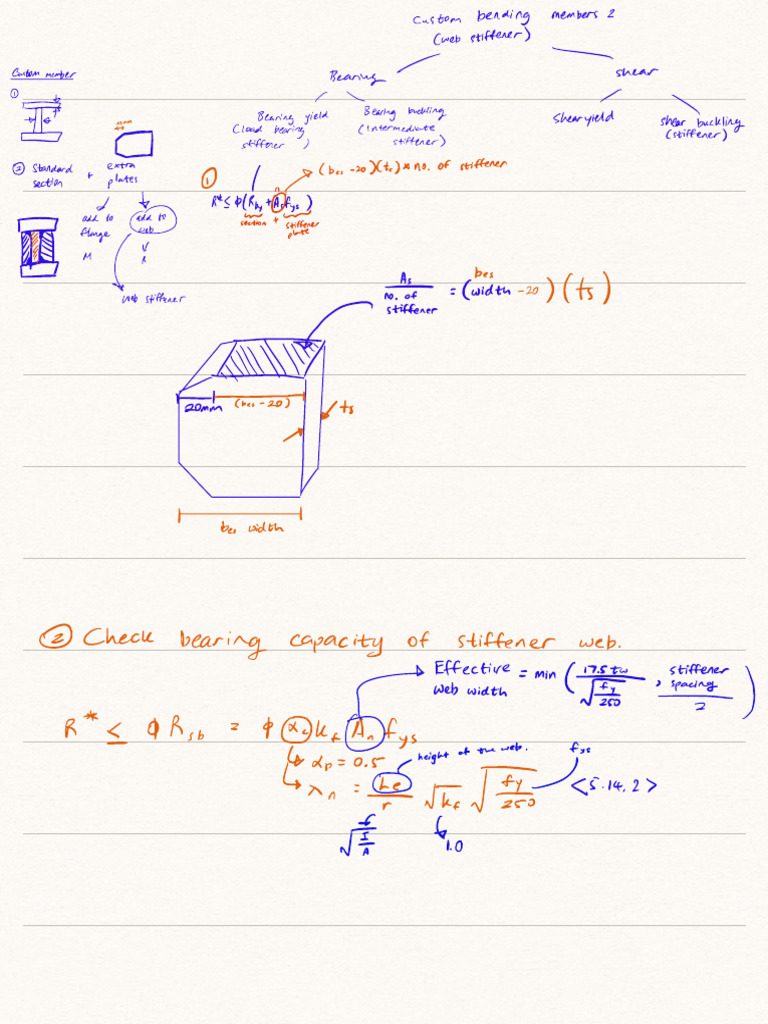 Custom bending members 2
(web stiffener)
Bearing
shear
Bearing yield
(load bearing
stiffener)
Bearing buckling
(Intermediate
stiffener)
Shear yield
shear buckling
(stiffener)
Custom member
①
② Standard
section
+
extra
plates
add to
flange
M
add to
web
V
R
web stiffener
①
(bes -20)(ts) x no. of stiffener
R* ≤ φ(Rby + As fys)
section + stiffener
plate
As / no. of stiffener = (width -20)(ts)
bes
20mm
(bes - 20)
ts
bes width
② Check bearing capacity of stiffener web.
Effective
web width
= min (17.5 tw / √(fy/250) , stiffener spacing / 2)
R* ≤ φ Rsb = φ αc kf An fys
αp = 0.5
height of the web.
fys
λn = Le/r √kf √(fy/250)
<5.14.2>
√(I/A)
1.0